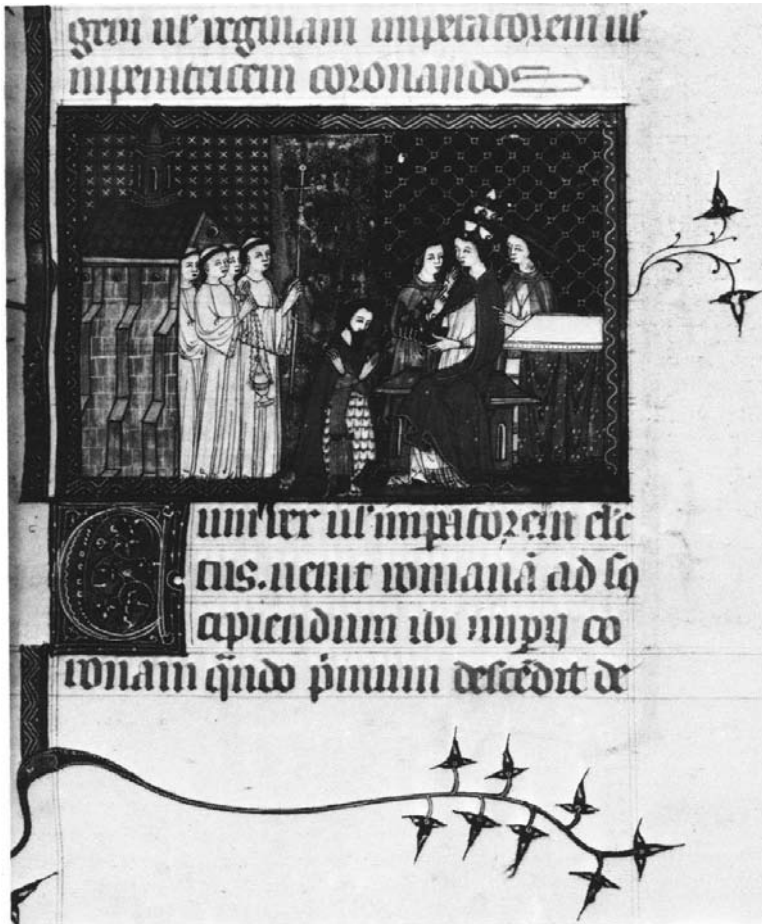 gem uel reginam imperatorem uel
imperatricem coronando
Cum rex uel impatorem elec
tus. uenit romanā ad su
cipiendum ibi impij co
ronam qn̄do p̄mum descēdit de